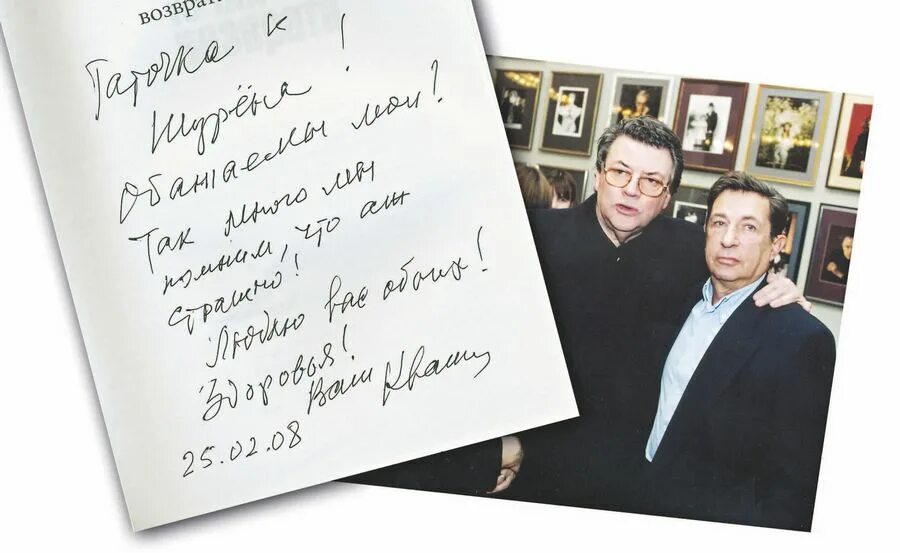 возврат
Таточка и
Шурёна!
Обожаемы мои!
Так много мы
помним, что аж
страшно!
Люблю вас обоих!
Здоровья!
Ваш Кваша
25.02.08